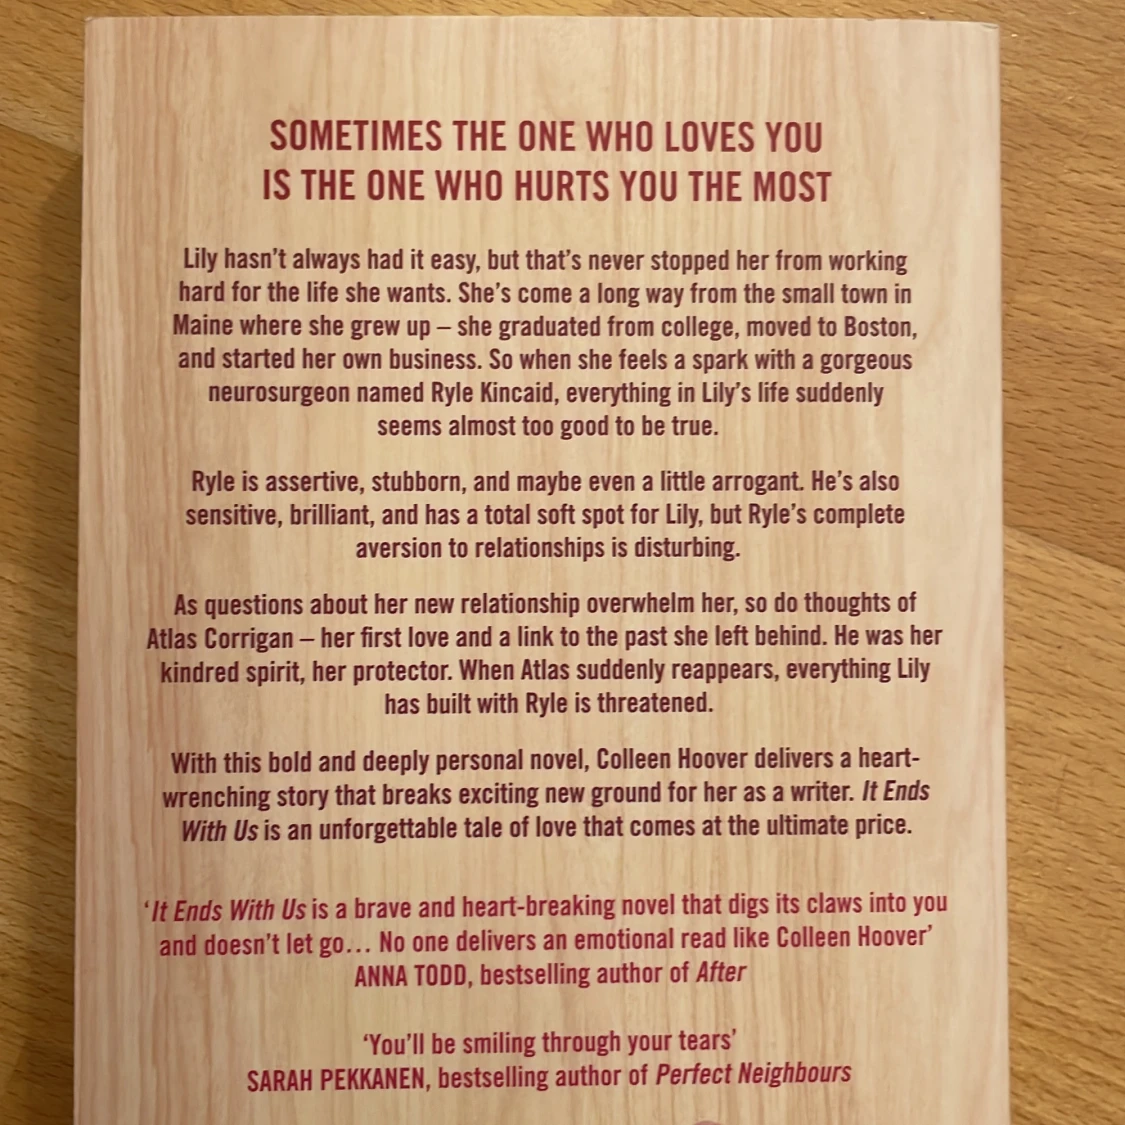 SOMETIMES THE ONE WHO LOVES YOU
IS THE ONE WHO HURTS YOU THE MOST
Lily hasn't always had it easy, but that's never stopped her from working
hard for the life she wants. She's come a long way from the small town in
Maine where she grew up – she graduated from college, moved to Boston,
and started her own business. So when she feels a spark with a gorgeous
neurosurgeon named Ryle Kincaid, everything in Lily's life suddenly
seems almost too good to be true.
Ryle is assertive, stubborn, and maybe even a little arrogant. He's also
sensitive, brilliant, and has a total soft spot for Lily, but Ryle's complete
aversion to relationships is disturbing.
As questions about her new relationship overwhelm her, so do thoughts of
Atlas Corrigan – her first love and a link to the past she left behind. He was her
kindred spirit, her protector. When Atlas suddenly reappears, everything Lily
has built with Ryle is threatened.
With this bold and deeply personal novel, Colleen Hoover delivers a heart-
wrenching story that breaks exciting new ground for her as a writer. It Ends
With Us is an unforgettable tale of love that comes at the ultimate price.
'It Ends With Us is a brave and heart-breaking novel that digs its claws into you
and doesn't let go... No one delivers an emotional read like Colleen Hoover'
ANNA TODD, bestselling author of After
'You'll be smiling through your tears'
SARAH PEKKANEN, bestselling author of Perfect Neighbours